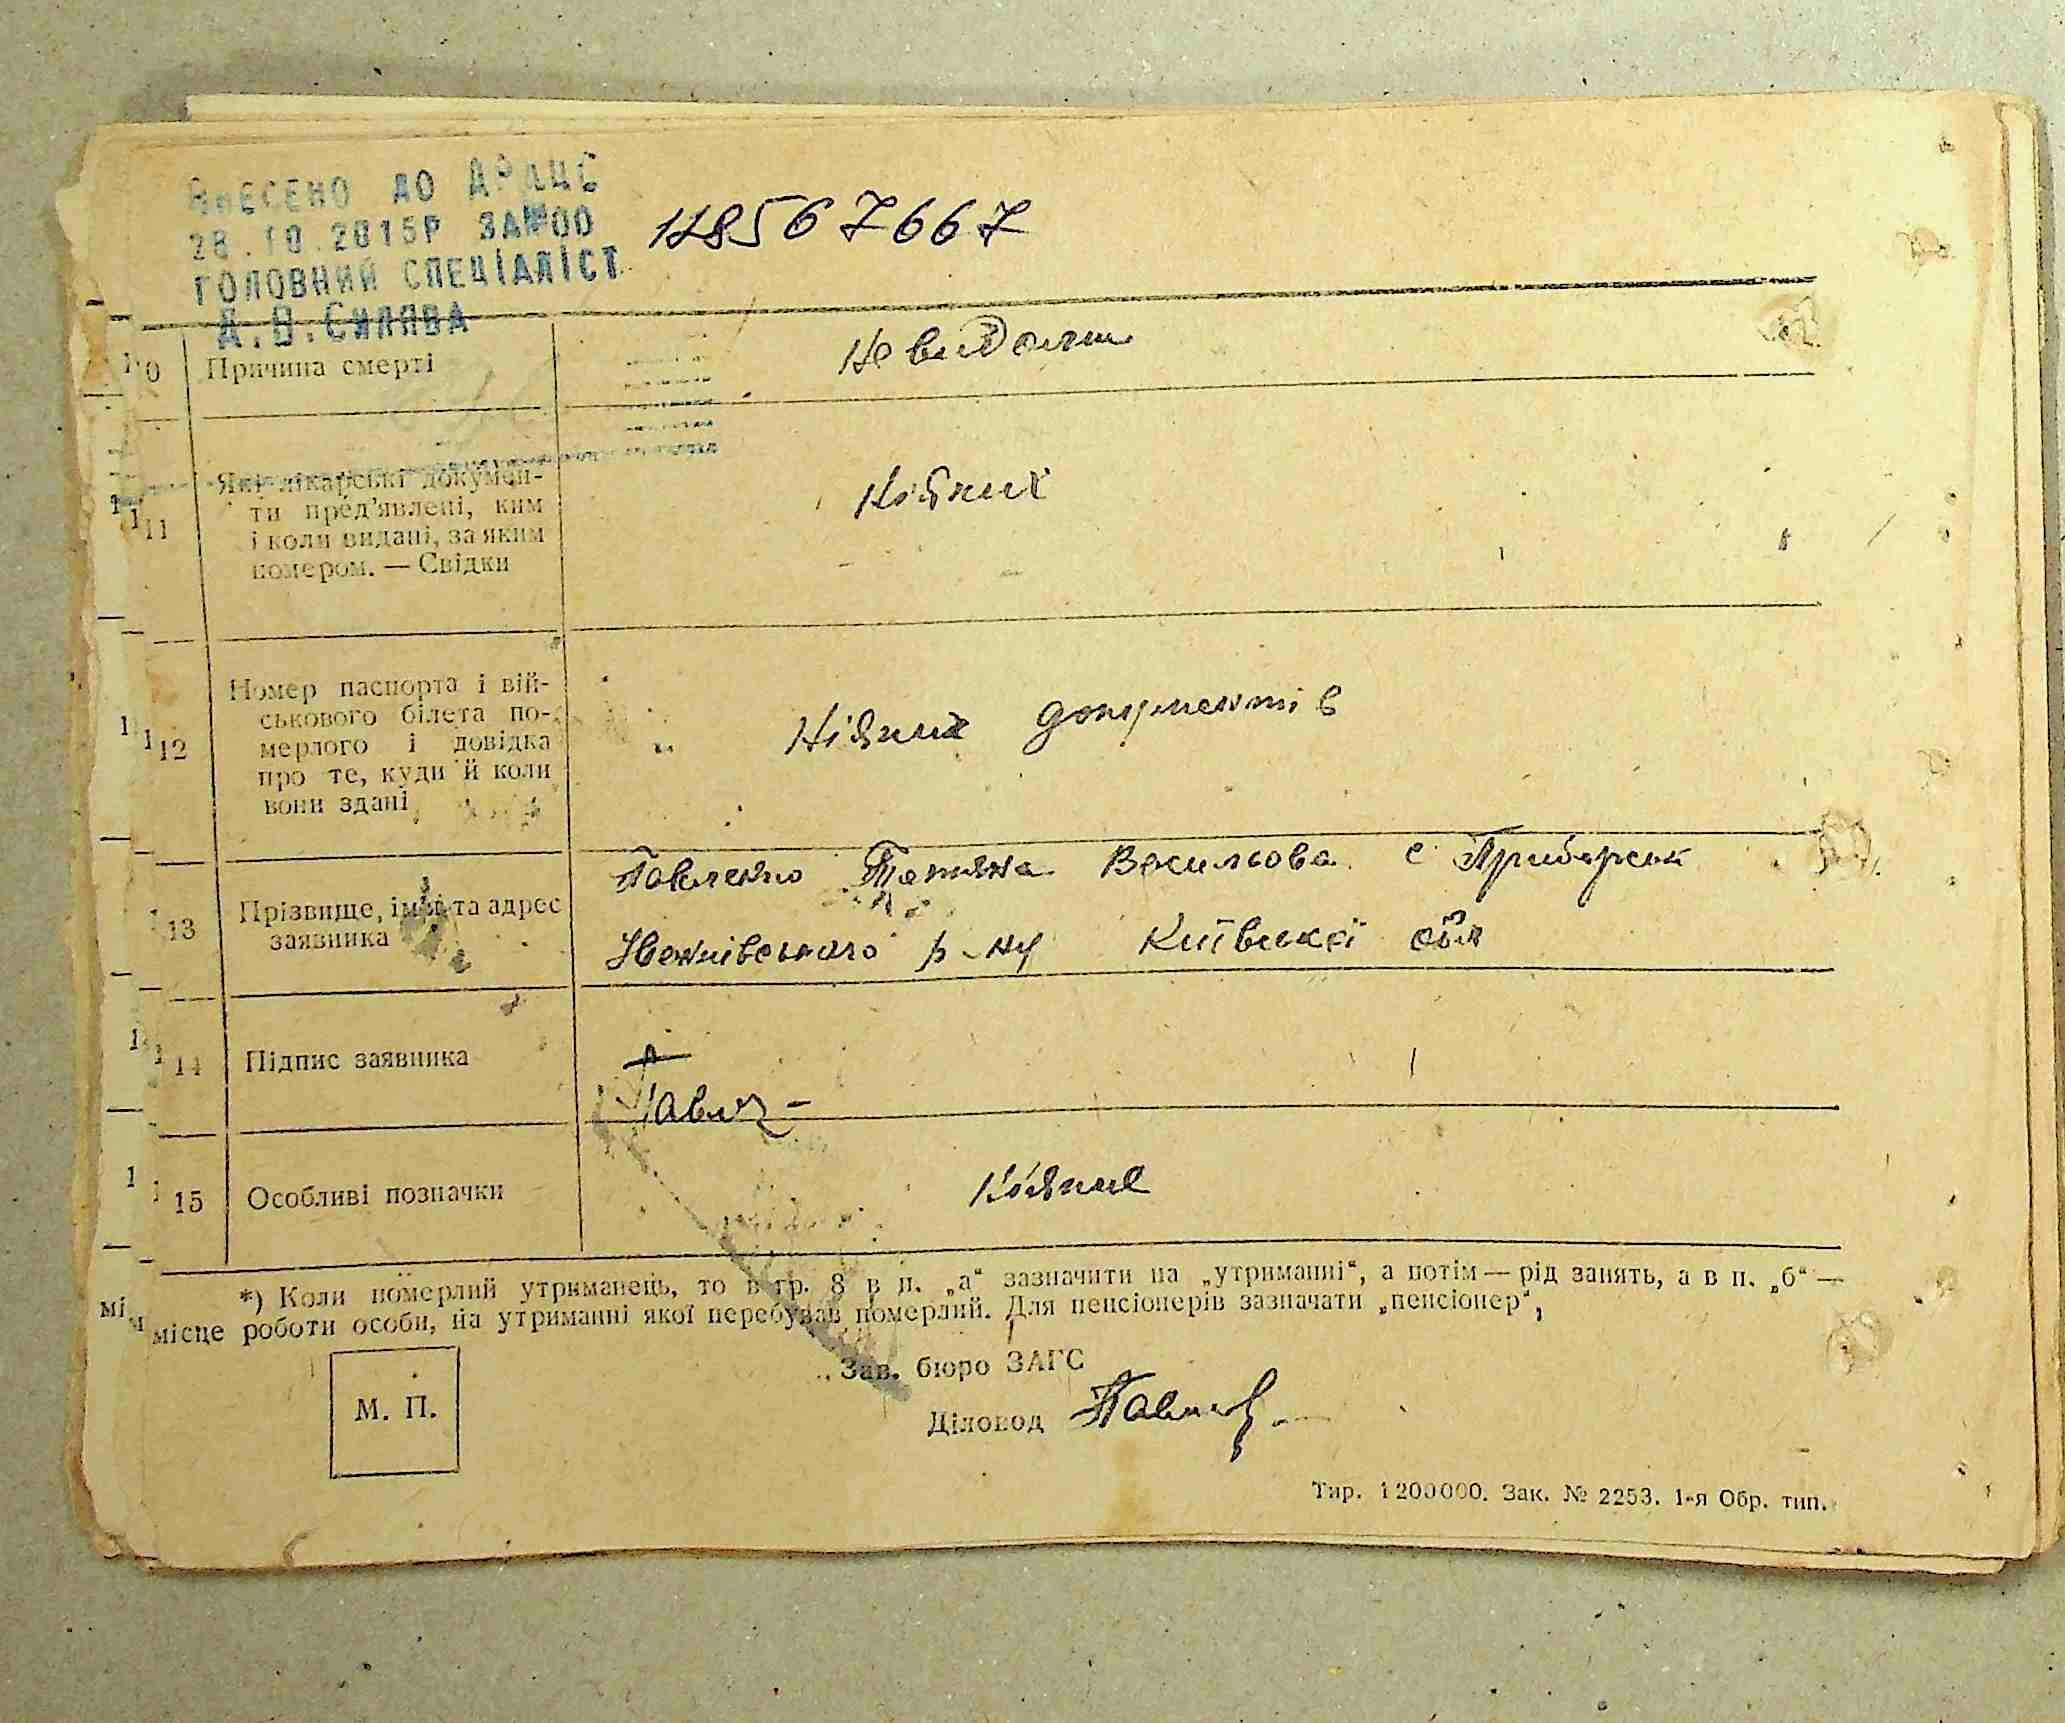 ВНЕСЕНО ДО ДРАЦС
28.10.2015Р ЗА №00 128567667
ГОЛОВНИЙ СПЕЦІАЛІСТ
10 Причина смерті
11 Які лікарські докумен-
ти пред'явлені, ким
і коли видані, за яким
номером. — Свідки
Ніяких
12 Номер паспорта і вій-
ськового білета по-
мерлого і довідка
про те, куди й коли
вони здані
Ніяких документів
13 Прізвище, ім'я та адрес
заявника
Павленко Татяна Васильова с Приборськ
р-ну Київської обл
14 Підпис заявника
15 Особливі позначки
*) Коли померлий утриманець, то в гр. 8 в п. „а“ зазначити на „утриманні“, а потім — рід занять, а в п. „б“ —
місце роботи особи, на утриманні якої перебував померлий. Для пенсіонерів зазначати „пенсіонер“,
Зав. бюро ЗАГС
М. П.
Діловод
Тир. 1200000. Зак. № 2253. 1-я Обр. тип.